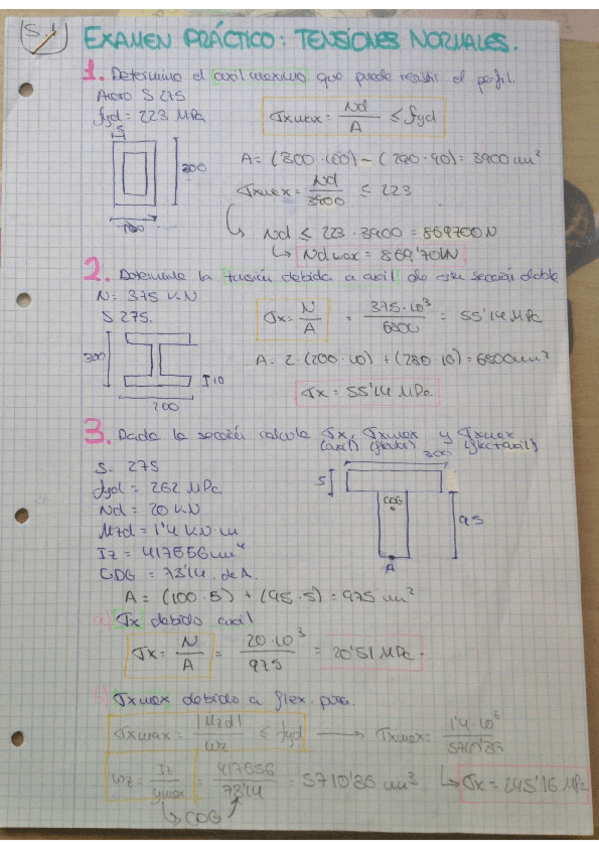 S.1
EXAMEN PRÁCTICO: TENSIONES NORMALES.
1. Determina el axil maximo que puede resistir el perfil.
Acero S 275
fyd = 223 MPa
σxmax = Nd/A ≤ fyd
5
200
100
A = (200·100) - (190·90) = 3900 mm²
σxmax = Nd/3900 ≤ 223
Nd ≤ 223 · 3900 = 869700N
Ndmax = 869'70kN
2. Determina la tensión debida a axil de esta sección doble
N = 375 KN
S 275.
σx = N/A = 375·10³/6800 = 55'14 MPa
300
10
200
A = 2·(200·10) + (280·10) = 6800mm²
σx = 55'14 MPa.
3. Dada la sección calcula σx, σxmax y σxmax
(axil) (flexión) (flec+axil)
S- 275
fyd = 262 MPa
Nd = 20 KN
Mzd = 1'4 KN·m
Iz = 417656mm⁴
CDG = 73'14. de A.
5
CDG
95
A
A = (100·5) + (95·5) = 975 mm²
a) σx debido axil
σx = N/A = 20·10³/975 = 20'51 MPa.
b) σxmax debido a flex. pura.
σxmax = |Mzd|/Wz ≤ fyd → σxmax = 1'4·10⁶/5710'86
Wz = Iz/ymax = 417656/73'14 = 5710'86 mm³
σx = 245'16 MPa
CDG